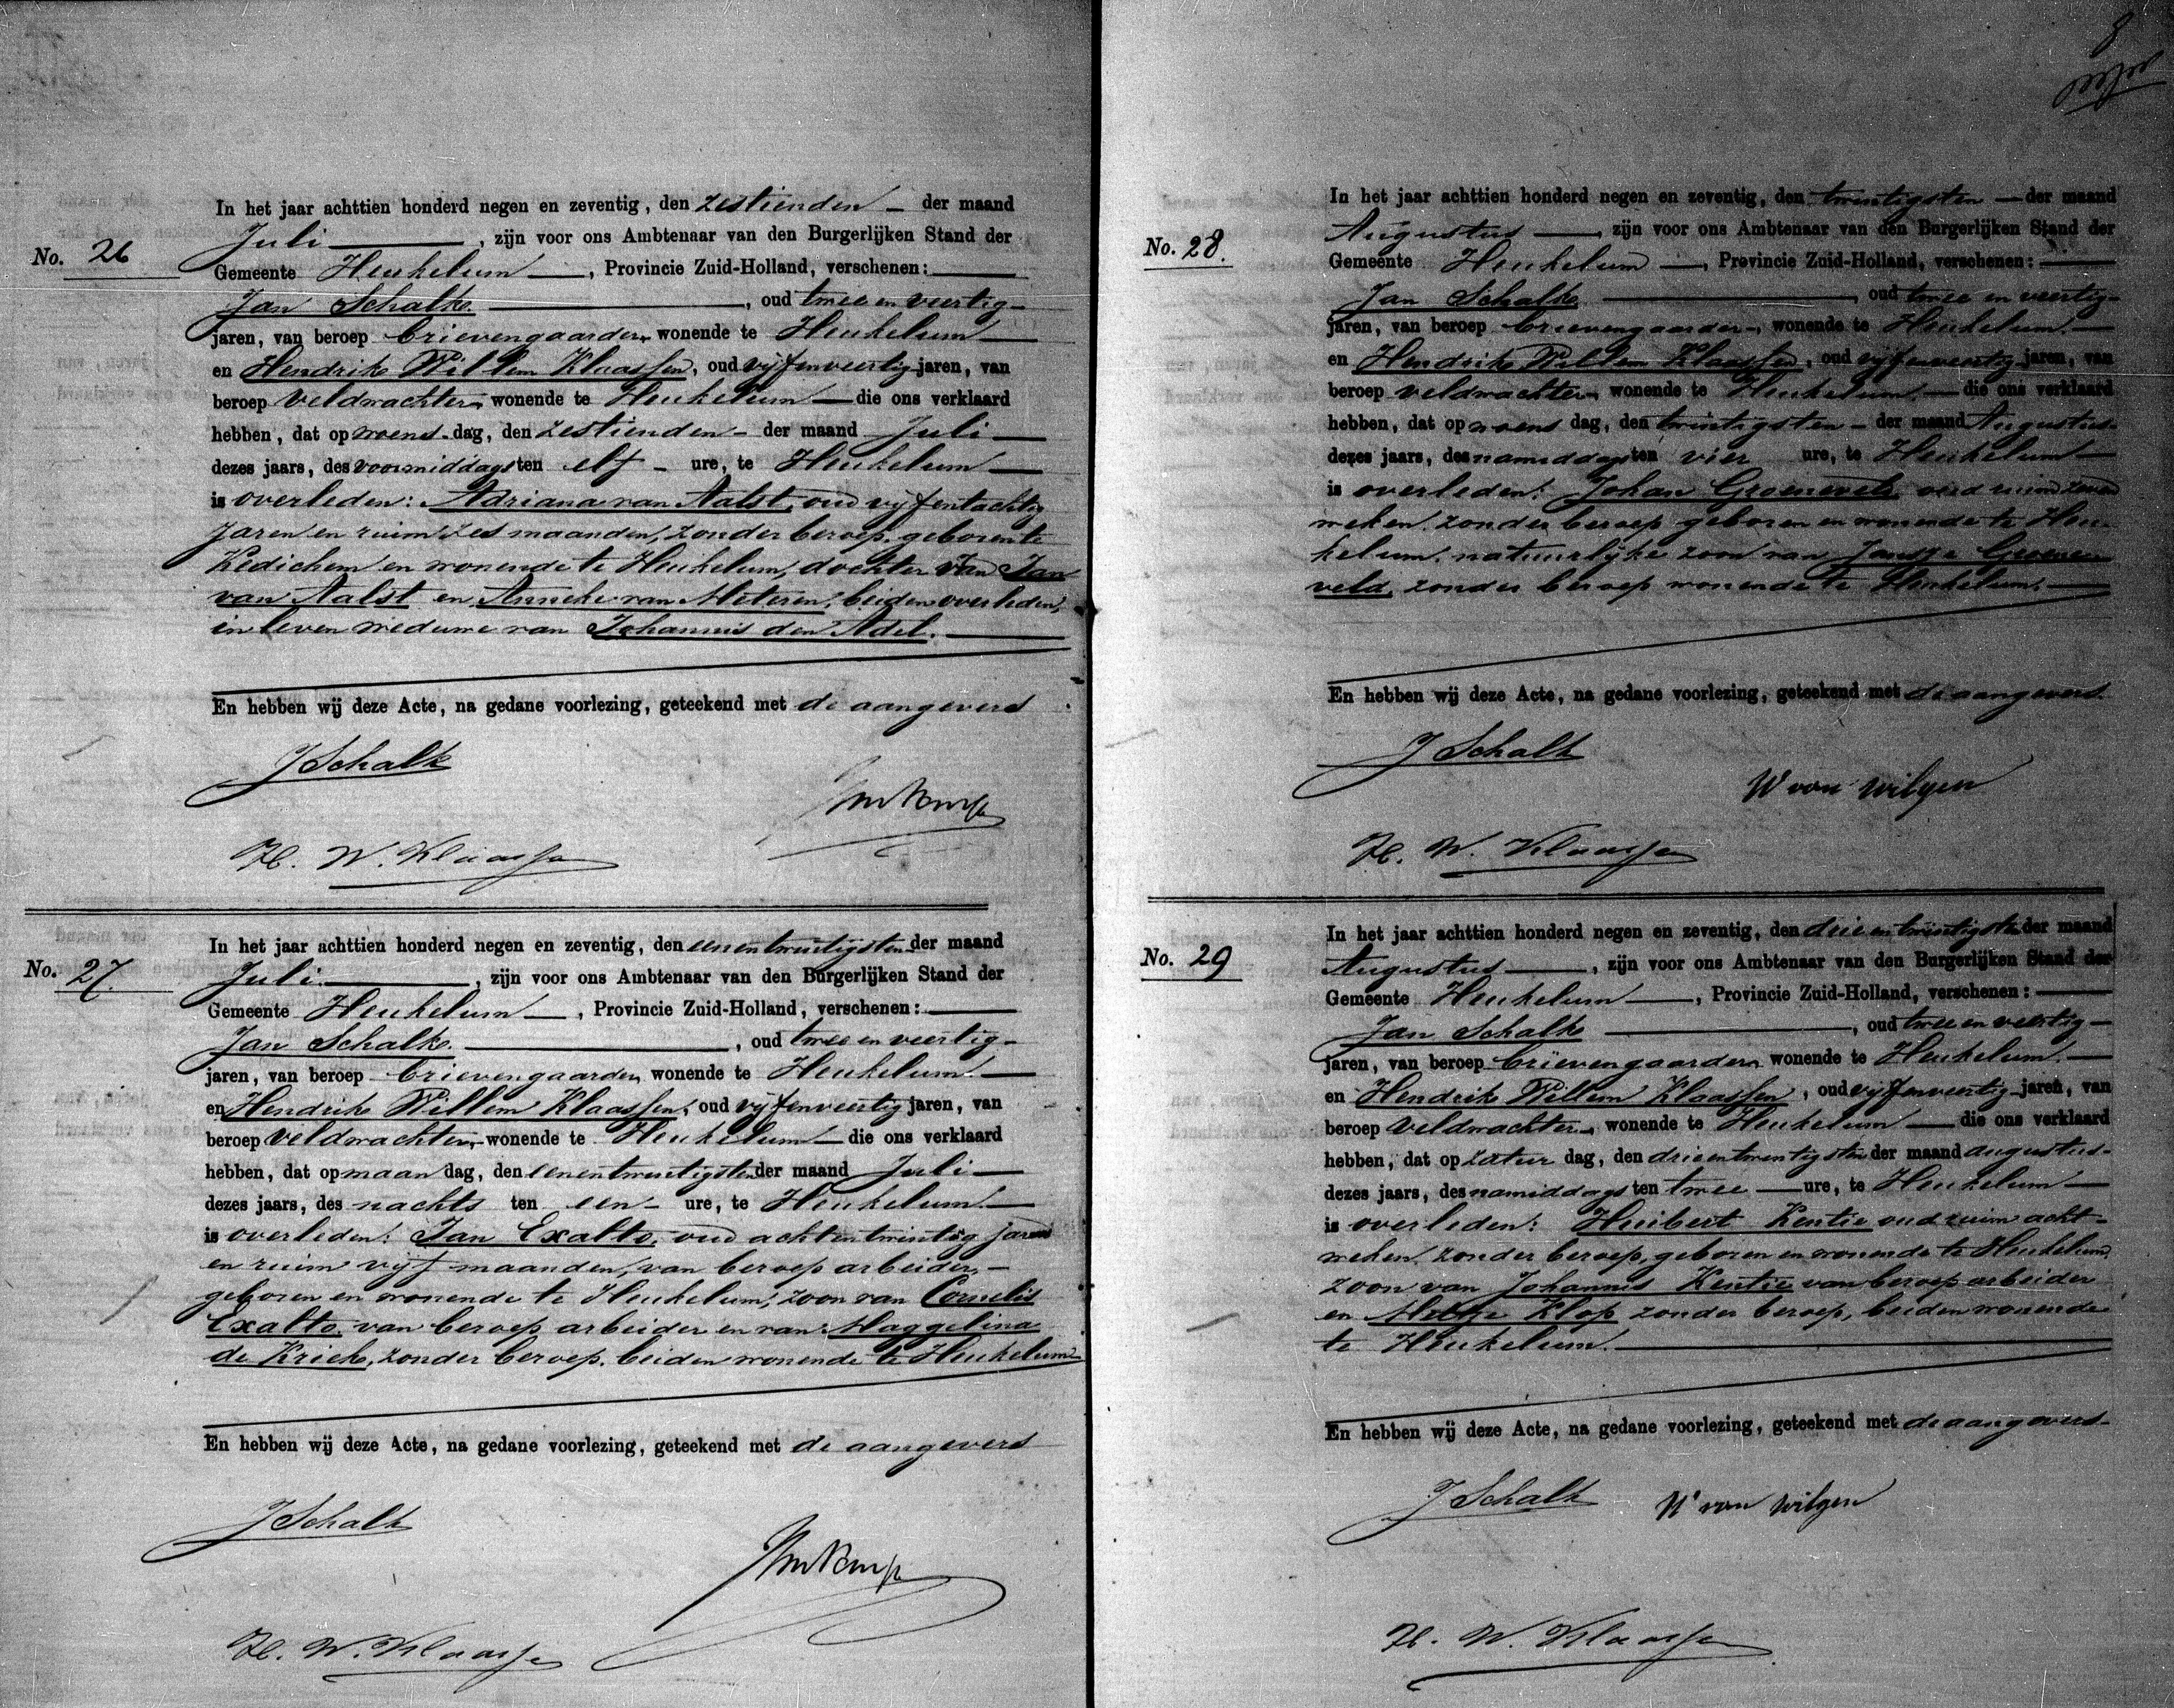 No. 26
In het jaar achttien honderd negen en zeventig, den zestienden der maand
Juli, zijn voor ons Ambtenaar van den Burgerlijken Stand der
Gemeente Heukelum, Provincie Zuid-Holland, verschenen:
Jan Schalk, oud twee en veertig
jaren, van beroep brievengaarder, wonende te Heukelum
en Hendrik Willem Klaassen, oud vijfenveertig jaren, van
beroep veldwachter, wonende te Heukelum die ons verklaard
hebben, dat op woensdag, den zestienden der maand Juli
dezes jaars, des voormiddags ten elf ure, te Heukelum
is overleden: Adriana van Aalst, oud vijfentachtig
jaren en ruim zes maanden, zonder beroep, geboren te
Kedichem en wonende te Heukelum, dochter van Jan
van Aalst en Anneke van Meteren, beiden overleden,
in leven weduwe van Johannis den Adel.
En hebben wij deze Acte, na gedane voorlezing, geteekend met de aangevers
J Schalk
H. W. Klaassen
No. 27.
In het jaar achttien honderd negen en zeventig, den eenentwintigsten der maand
Juli, zijn voor ons Ambtenaar van den Burgerlijken Stand der
Gemeente Heukelum, Provincie Zuid-Holland, verschenen:
Jan Schalk, oud twee en veertig
jaren, van beroep brievengaarder, wonende te Heukelum
en Hendrik Willem Klaassen, oud vijfenveertig jaren, van
beroep veldwachter, wonende te Heukelum die ons verklaard
hebben, dat op maandag, den eenentwintigsten der maand Juli
dezes jaars, des nachts ten een ure, te Heukelum
is overleden: Jan Exalto, oud achtentwintig jaren
en ruim vijf maanden, van beroep arbeider,
geboren en wonende te Heukelum, zoon van Cornelis
Exalto, van beroep arbeider en van Maggelina
de Kriek, zonder beroep, beiden wonende te Heukelum
En hebben wij deze Acte, na gedane voorlezing, geteekend met de aangevers
J Schalk
H. W. Klaassen
8
No. 28.
In het jaar achttien honderd negen en zeventig, den twintigsten der maand
Augustus, zijn voor ons Ambtenaar van den Burgerlijken Stand der
Gemeente Heukelum, Provincie Zuid-Holland, verschenen:
Jan Schalk, oud twee en veertig
jaren, van beroep brievengaarder, wonende te Heukelum.
en Hendrik Willem Klaassen, oud vijfenveertig jaren, van
beroep veldwachter, wonende te Heukelum, die ons verklaard
hebben, dat op woensdag, den twintigsten der maand Augustus
dezes jaars, des namiddags ten vier ure, te Heukelum
is overleden: Johan Groeneveld, oud ruim zeven
weken, zonder beroep, geboren en wonende te Heu-
kelum, natuurlijke zoon van Jansje Groene-
veld, zonder beroep wonende te Heukelum.
En hebben wij deze Acte, na gedane voorlezing, geteekend met de aangevers.
J Schalk
W van Wilgen
H. W. Klaassen
No. 29
In het jaar achttien honderd negen en zeventig, den drieentwintigsten der maand
Augustus, zijn voor ons Ambtenaar van den Burgerlijken Stand der
Gemeente Heukelum, Provincie Zuid-Holland, verschenen:
Jan Schalk, oud twee en veertig
jaren, van beroep brievengaarder, wonende te Heukelum.
en Hendrik Willem Klaassen, oud vijfenveertig jaren, van
beroep veldwachter, wonende te Heukelum die ons verklaard
hebben, dat op zaturdag, den drieentwintigsten der maand augustus
dezes jaars, des namiddags ten twee ure, te Heukelum
is overleden: Huibert Kentie oud ruim acht
weken, zonder beroep, geboren en wonende te Heukelum,
zoon van Johannis Kentie van beroep arbeider
en Metje Klop zonder beroep, beiden wonende
te Heukelum.
En hebben wij deze Acte, na gedane voorlezing, geteekend met de aangevers
J Schalk
W van Wilgen
H. W. Klaassen